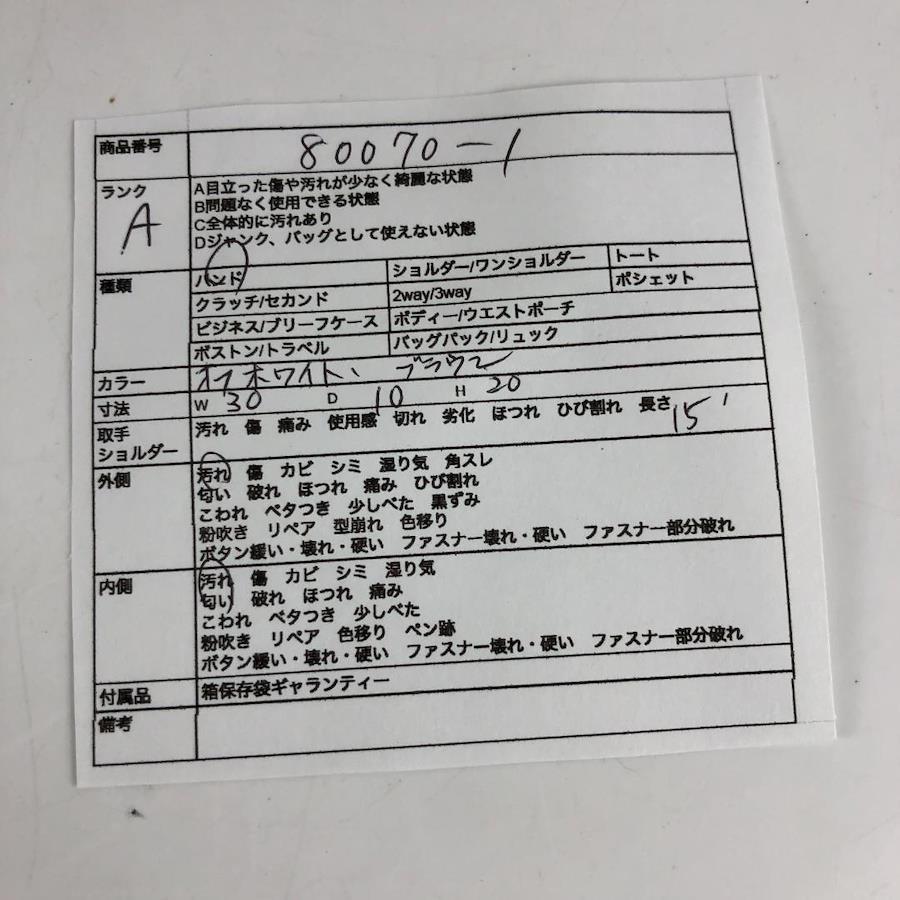 商品番号 80070-1
ランク A
A目立った傷や汚れが少なく綺麗な状態
B問題なく使用できる状態
C全体的に汚れあり
Dジャンク、バッグとして使えない状態
種類 ハンド ショルダー/ワンショルダー トート
クラッチ/セカンド 2way/3way ポシェット
ビジネス/ブリーフケース ボディー/ウエストポーチ
ボストン/トラベル バッグパック/リュック
カラー オフホワイト、ブラウン
寸法 W 30 D 10 H 20
取手 汚れ 傷 痛み 使用感 切れ 劣化 ほつれ ひび割れ 長さ 15
ショルダー
外側 汚れ 傷 カビ シミ 湿り気 角スレ
匂い 破れ ほつれ 痛み ひび割れ
こわれ ベタつき 少しべた 黒ずみ
粉吹き リペア 型崩れ 色移り
ボタン緩い・壊れ・硬い ファスナー壊れ・硬い ファスナー部分破れ
内側 汚れ 傷 カビ シミ 湿り気
匂い 破れ ほつれ 痛み
こわれ ベタつき 少しべた
粉吹き リペア 色移り ペン跡
ボタン緩い・壊れ・硬い ファスナー壊れ・硬い ファスナー部分破れ
付属品 箱保存袋ギャランティー
備考